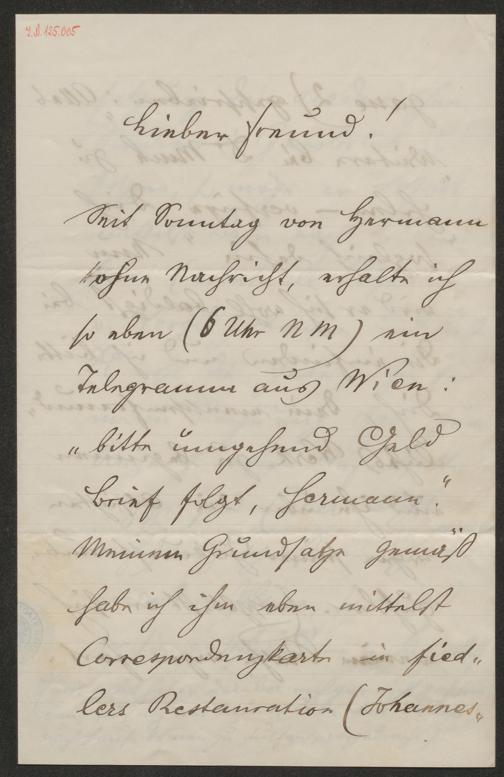 I.N. 125.005
Lieber Freund!
Seit Sonntag von Hermann
ohne Nachricht, erhalte ich
so eben (6 Uhr NM) ein
Telegramm aus Wien:
„bitte umgehend Geld
Brief folgt, Hermann."
Meinem Grundsatze gemäß
habe ich ihm eben mittelst
Correspondenzkarte in Fied„
lers Restauration (Johannes„